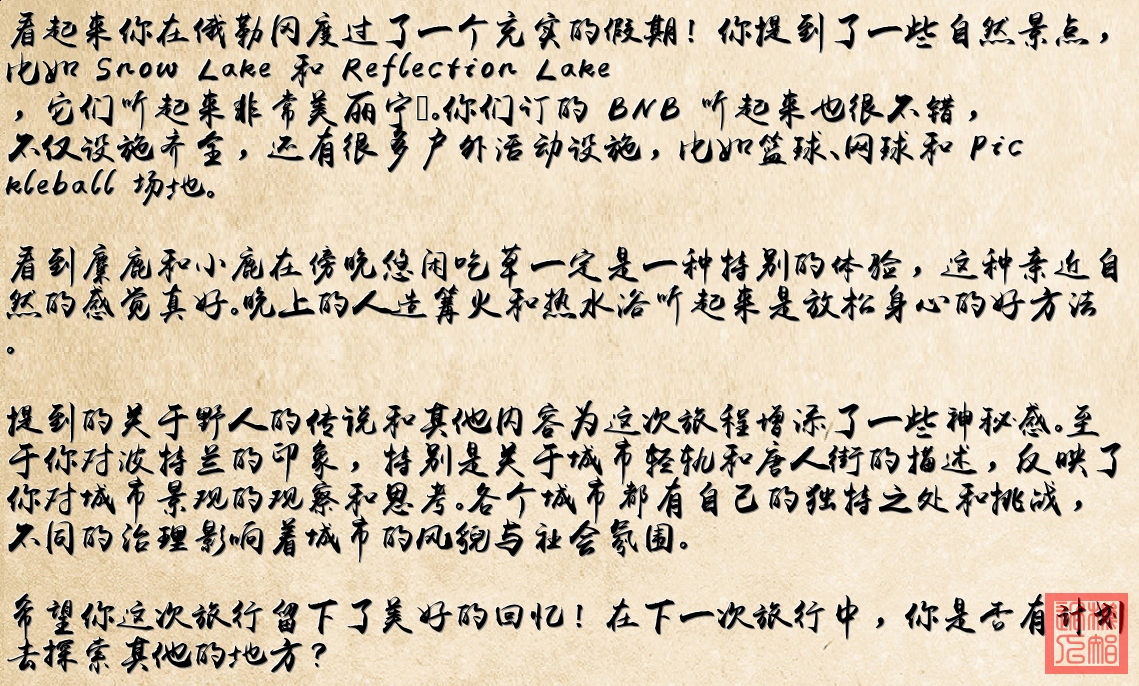 看起来你在俄勒冈度过了一个充实的假期！你提到了一些自然景点，
比如 Snow Lake 和 Reflection Lake
，它们听起来非常美丽宁。你们订的 BNB 听起来也很不错，
不仅设施齐全，还有很多户外活动设施，比如篮球、网球和 Pic
kleball 场地。
看到麋鹿和小鹿在傍晚悠闲吃草一定是一种特别的体验，这种亲近自
然的感觉真好。晚上的人造篝火和热水浴听起来是放松身心的好方法
。
提到的关于野人的传说和其他内容为这次旅程增添了一些神秘感。至
于你对波特兰的印象，特别是关于城市轻轨和唐人街的描述，反映了
你对城市景观的观察和思考。各个城市都有自己的独特之处和挑战，
不同的治理影响着城市的风貌与社会氛围。
希望你这次旅行留下了美好的回忆！在下一次旅行中，你是否有计划
去探索其他的地方？